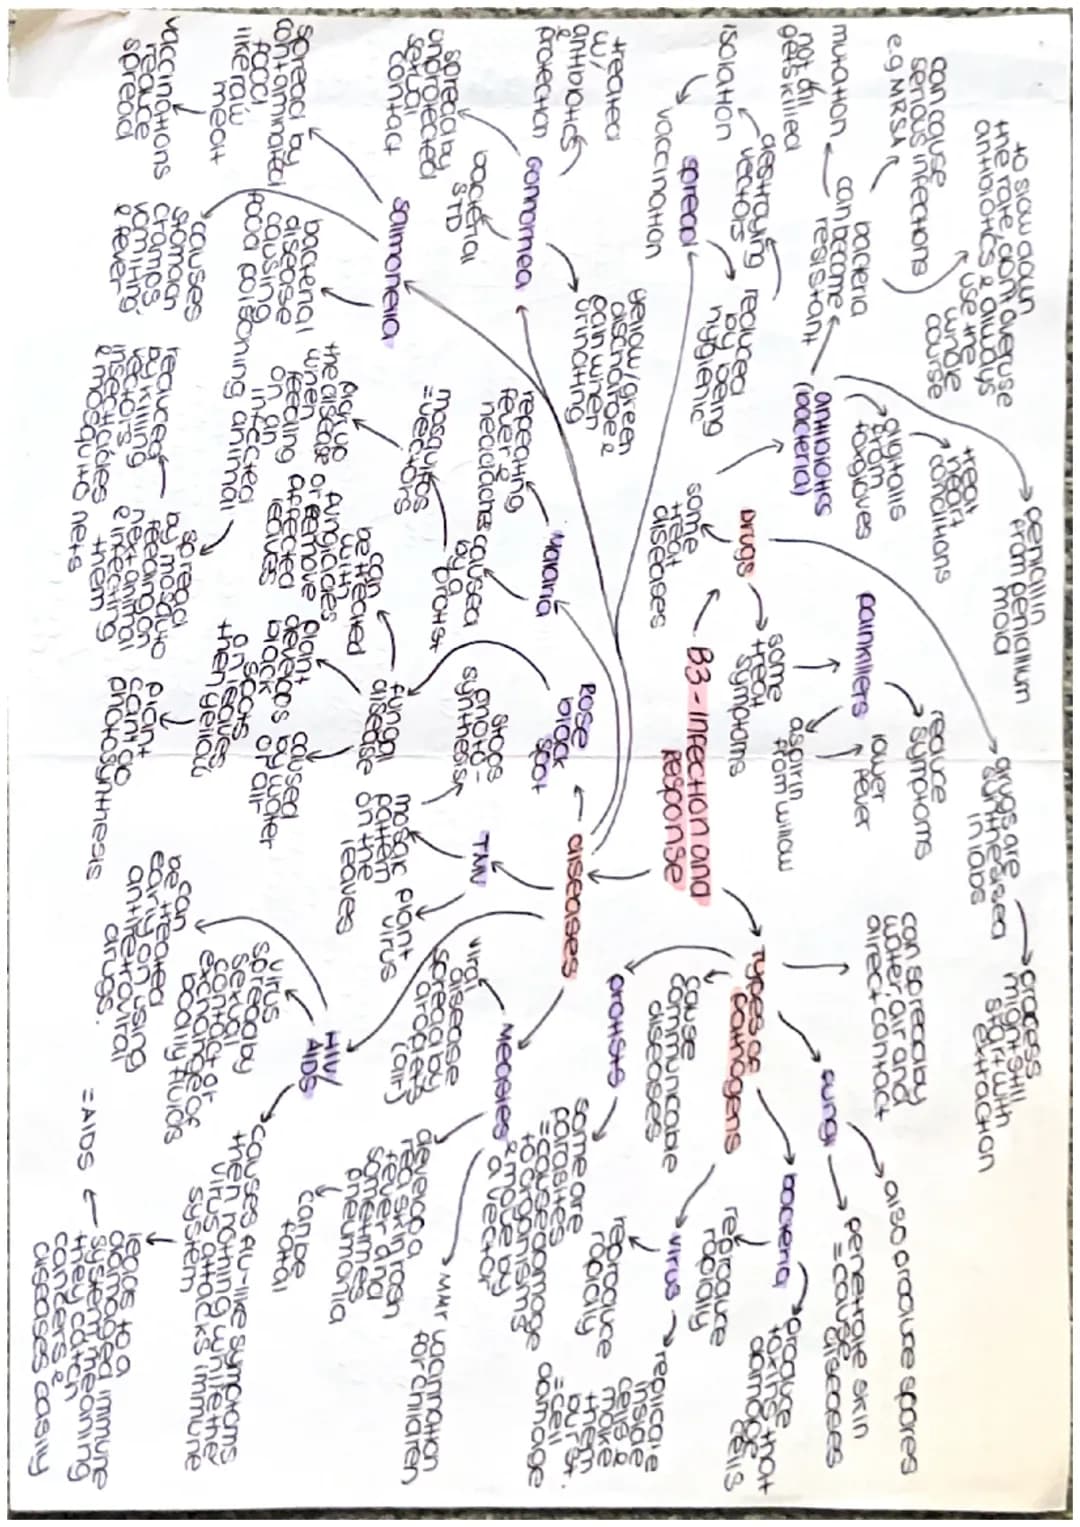 B3 - infection and
response
Types of
pathogens
can spread by
water, air and
direct contact
cause
communicable
diseases
fungi
also produce spores
penetrate skin
= cause
diseases
bacteria
reproduce
rapidly
produce
toxins that
damage
cells
virus
reproduce
rapidly
replicate
inside
cells &
make
them
burst.
= cell
damage
protists
some are
parasites
= cause damage
to organisms
& move by
a vector
Drugs
some
treat
diseases
some
treat
symptoms
painkillers
reduce
symptoms
lower
fever
aspirin
from willow
drugs are
synthesised
in labs
process
might still
start with
extraction
antibiotics
(bacteria)
penicillin
from penicilium
mold
digitalis
from
foxgloves
treat
heart
conditions
bacteria
can become
resistant
mutation
not all
gets killed
can cause
serious infections
e.g MRSA
to slow down
the rate, dont overuse
antibiotics & always
use the
whole
course
diseases
spread
reduced
by being
hygienic
destroying
vectors
isolation
vaccination
Gonnorhea
treated
w/
antibiotics
&
protection
spread by
unprotected
sexual
contact
bacterial
STD
yellow/green
discharge &
pain when
urinating
Salmonella
spread by
contaminated
food
like raw
meat
vaccinations
reduce
spread
bacterial
disease
causing
food poisoning
causes
stomach
cramps,
vomiting
& fever
Malaria
repeating
fever &
headache
caused
by a
protist
mosquitos
= vectors
pick up
the disease
when
feeding
on an
infected
animal
spread
by mosquito
feeding on
next animal
& infecting
them
reduced
by killing
vectors
insecticides
& mosquito nets
Rose
black
spot
fungal
disease
can
be treated
with
fungicides
or remove
affected
leaves
plant
develops
black
spots
on leaves
then yellow
plant
can't do
photosynthesis
caused
by water
or air
TMV
mosaic
pattern
on the
leaves
stops
photo-
synthesis
plant
virus
Measles
viral
disease
spread by
droplets
(air)
develop a
red skin rash
fever and
sometimes
pneumonia
can be
fatal
MMR vaccination
for children
HIV/
AIDS
virus
spread by
sexual
contact or
exchange of
bodily fluids
can
be treated
early on using
antiretroviral
drugs.
causes flu-like symptoms
then nothing while the
virus attacks immune
system
leads to a
damaged immune
system, meaning
they catch
cancers &
diseases easily
= AIDS